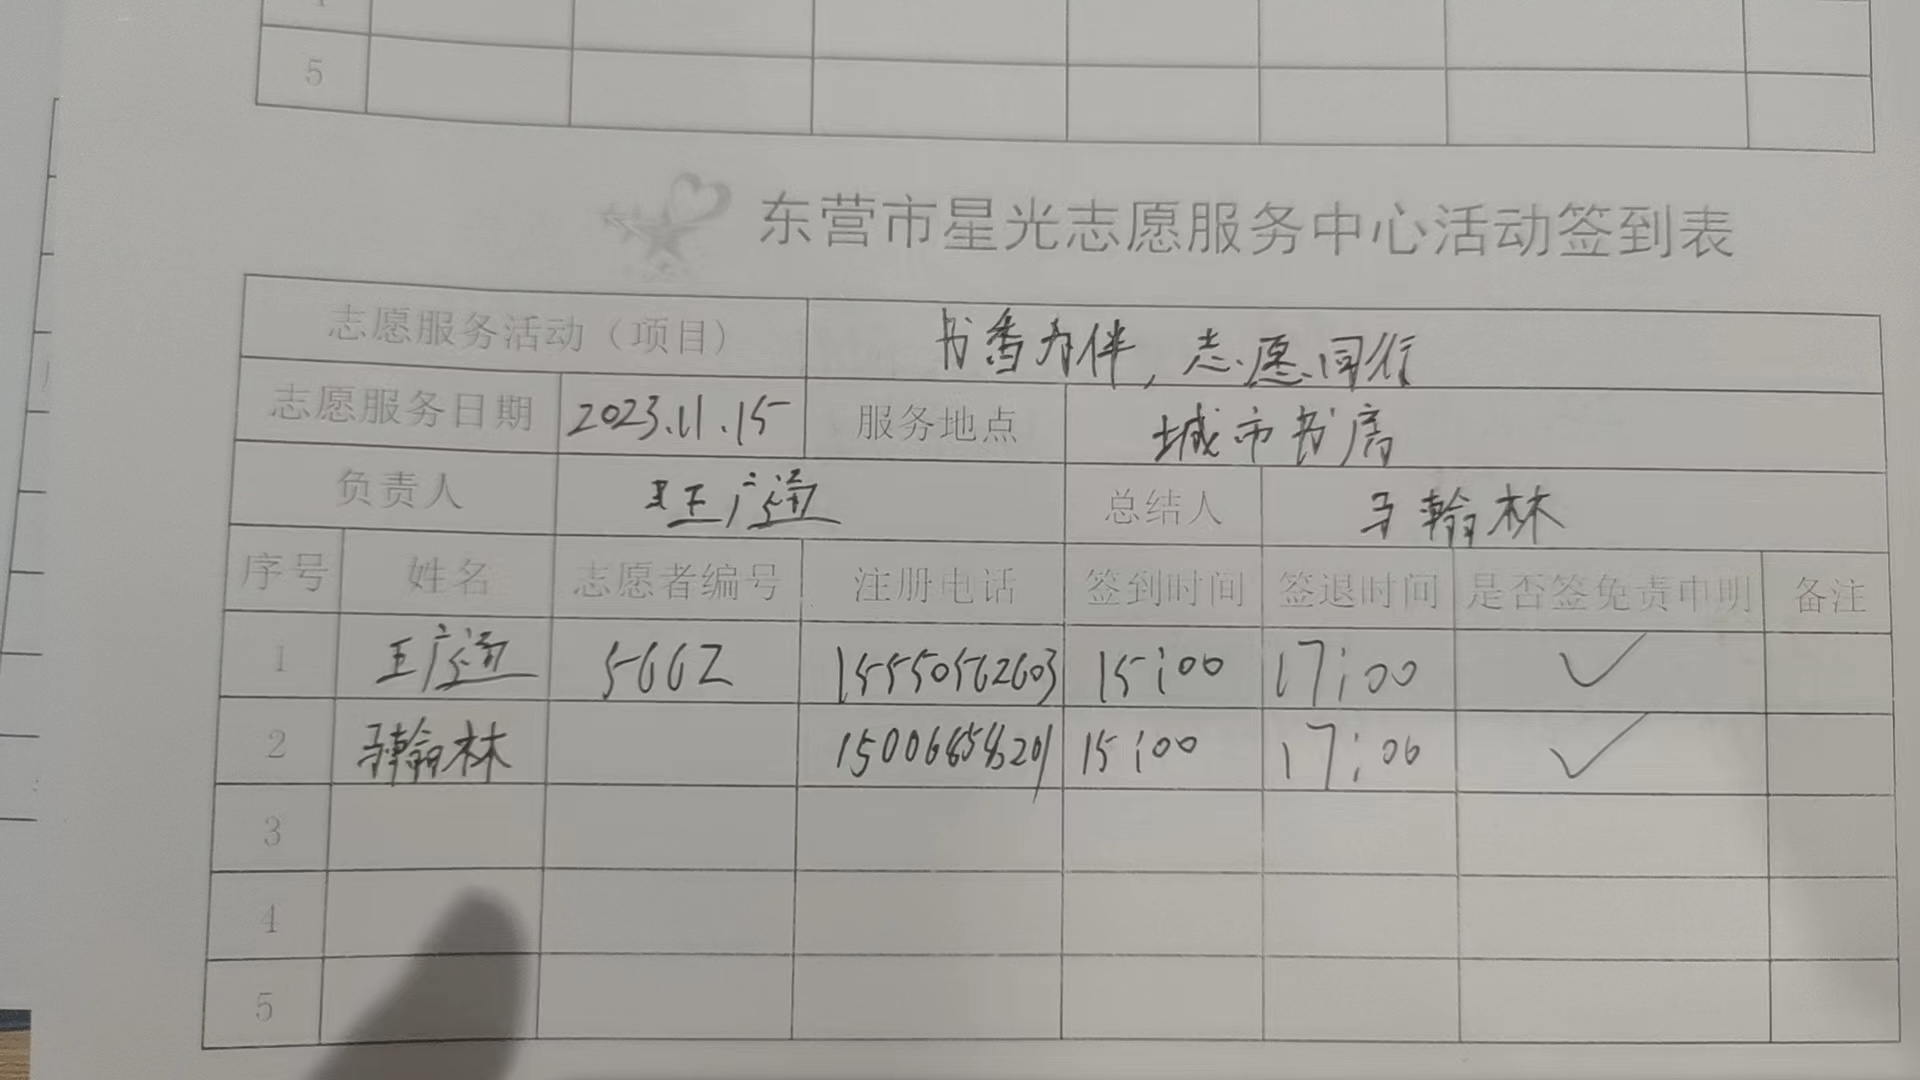 5
东营市星光志愿服务中心活动签到表
志愿服务活动（项目） 书香为伴，志愿同行
志愿服务日期 2023.11.15 服务地点 城市书房
负责人 王广通 总结人 马翰林
序号 姓名 志愿者编号 注册电话 签到时间 签退时间 是否签免责申明 备注
1 王广通 5662 15550562603 15:00 17:00 ✓
2 马翰林 15:00 17:00 ✓
3
4
5